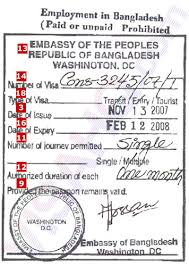 Employment in Bangladesh
(Paid or unpaid Prohibited
13 EMBASSY OF THE PEOPLES
REPUBLIC OF BANGLADESH
WASHINGTON, DC
14
Number of Visa Cons-3245/07/1
18
Type of Visa Transit / Entry / Tourist
3
Date of Issue NOV 13 2007
16
Date of Expiry FEB 12 2008
11
Number of journey permitted Single
Single / Multiple
12
Authorized duration of each One month
9
Provided the passport remains valid.
WASHINGTON
D.C.
Embassy of Bangladesh
Washington DC